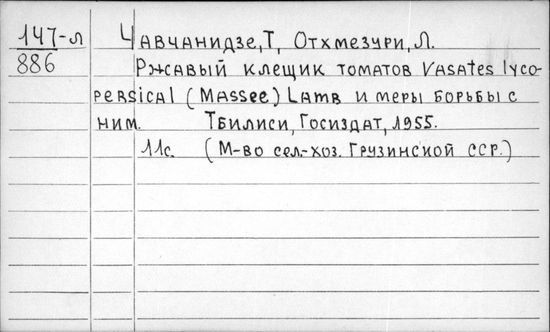 147-л Чавчанидзе, Т, Отхмезури, Л.
886 Ржавый клещик томатов Vasates lyco-
persical (Massee) Lamb и меры борьбы с
ним. Тбилиси, Госиздат, 1955.
11с. (М-во сел-хоз. Грузинской ССР.)